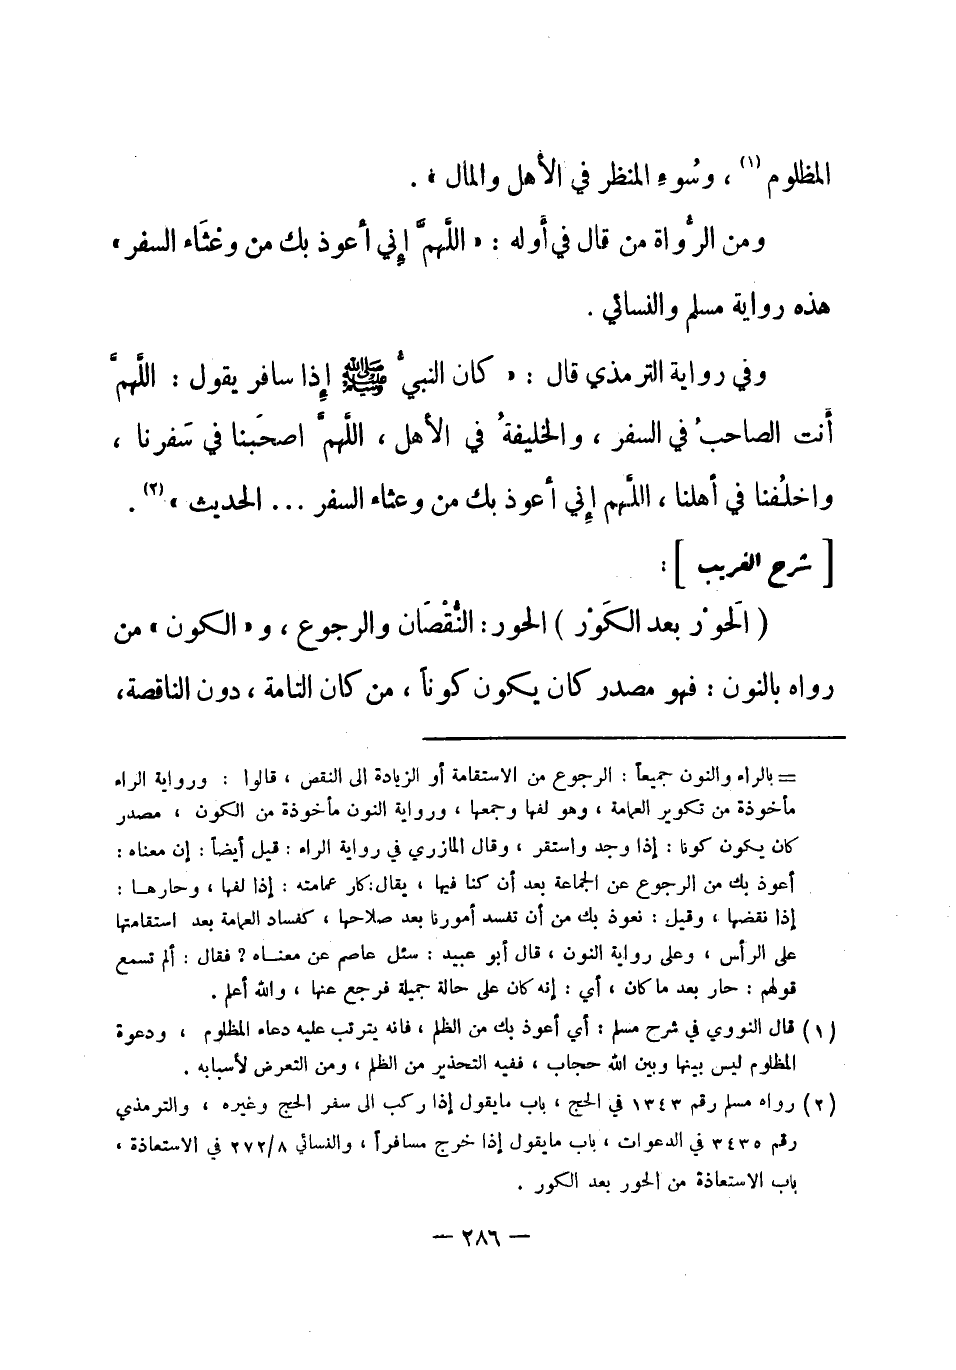 المظلوم (١) ، وسُوءِ المنظر في الأهل والمال » .
ومن الرُّواة من قال في أوله : « اللَّهمَّ إِني أعوذ بك من وعْثَاء السفر »
هذه رواية مسلم والنسائي .
وفي رواية الترمذي قال : « كان النبيُّ ﷺ إِذا سافر يقول : اللَّهمَّ
أنت الصاحبُ في السفر ، والخليفةُ في الأهل ، اللَّهمَّ اصحَبنا في سَفرنا ،
واخلُفنا في أهلنا ، اللَّهم إِني أعوذ بك من وعثاء السفر ... الحديث » (٢) .
[ شرح الغريب ] :
( الَحوْر بعد الكَوْر ) الحور : النُّقْصَان والرجوع ، و « الكون » من
رواه بالنون : فهو مصدر كان يكون كوناً ، من كان التامة ، دون الناقصة،
= بالراء والنون جميعاً : الرجوع من الاستقامة أو الزيادة الى النقص ، قالوا : ورواية الراء
مأخوذة من تكوير العمامة ، وهو لفها وجمعها ، ورواية النون مأخوذة من الكون ، مصدر
كان يكون كونا : إذا وجد واستقر ، وقال المازري في رواية الراء : قيل أيضاً : إن معناه :
أعوذ بك من الرجوع عن الجماعة بعد أن كنا فيها ، يقال: كار عمامته : إذا لفها ، وحارهـا :
إذا نقضها ، وقيل : نعوذ بك من أن تفسد أمورنا بعد صلاحها ، كفساد العمامة بعد استقامتها
على الرأس ، وعلى رواية النون ، قال أبو عبيد : سئل عاصم عن معنـاه ? فقال : ألم تسمع
قولهم : حار بعد ما كان ، أي : إنه كان على حالة جميلة فرجع عنها ، والله أعلم .
(١) قال النووي في شرح مسلم : أي أعوذ بك من الظلم ، فانه يترتب عليه دعاء المظلوم ، ودعوة
المظلوم ليس بينها وبين الله حجاب ، ففيه التحذير من الظلم ، ومن التعرض لأسبابه .
(٢) رواه مسلم رقم ١٣٤٣ في الحج ، باب مايقول إذا ركب الى سفر الحج وغيره ، والترمذي
رقم ٣٤٣٥ في الدعوات ، باب مايقول إذا خرج مسافراً ، والنسائي ٢٧٢/٨ في الاستعاذة ،
باب الاستعاذة من الحور بعد الكور .
— ٢٨٦ —